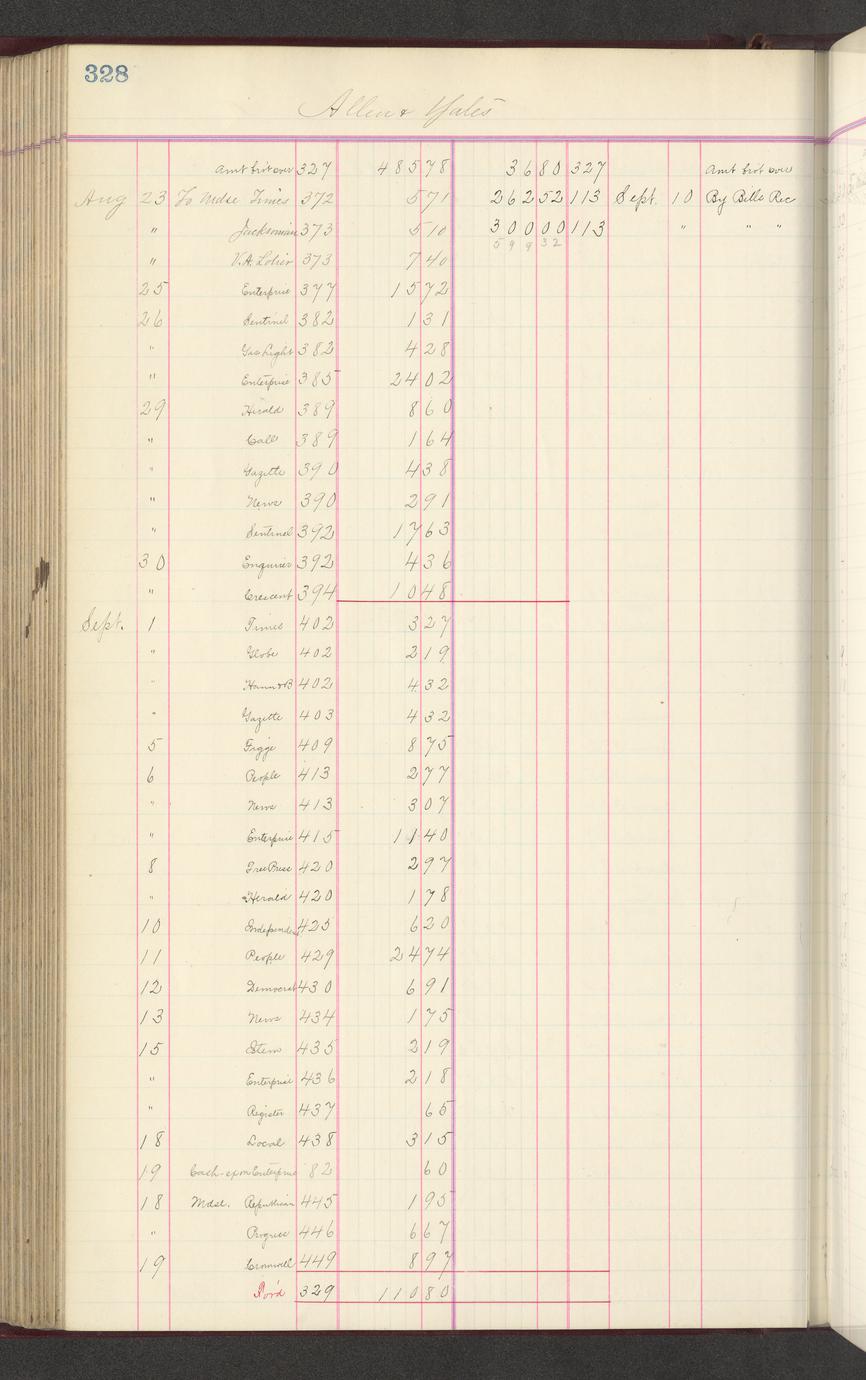 328
Allen & Yales
Amt brot over 327 485 78 36 80 327 Amt brot over
Aug 23 To Mdse Times 372 5 71 262 52 113 Sept. 10 By Bills Rec
" Jacksonian 373 5 10 300 00 113 " " "
599 32
" V.A. 373 7 40
25 Enterprise 377 15 72
26 Sentinel 382 1 31
" Gas Light 382 4 28
" Enterprise 385 24 02
29 Herald 389 8 60
" Call 389 1 64
" Gazette 390 4 38
" News 390 2 91
" Sentinel 392 17 63
30 Enquirer 392 4 36
" Crescent 394 10 48
Sept. 1 Times 402 3 27
" Globe 402 2 19
" 402 4 32
" Gazette 403 4 32
5 409 8 75
6 People 413 2 77
" News 413 3 07
" Enterprise 415 11 40
8 Free Press 420 2 97
" Herald 420 1 78
10 Independent 425 6 20
11 People 429 24 74
12 Democrat 430 6 91
13 News 434 1 75
15 435 2 19
" Enterprise 436 2 18
" Register 437 65
18 Local 438 3 15
19 Cash-exp Enterprise 82 60
18 Mdse. Republican 445 1 95
" Progress 446 6 67
19 Cromwell 449 8 97
For'd 329 110 80